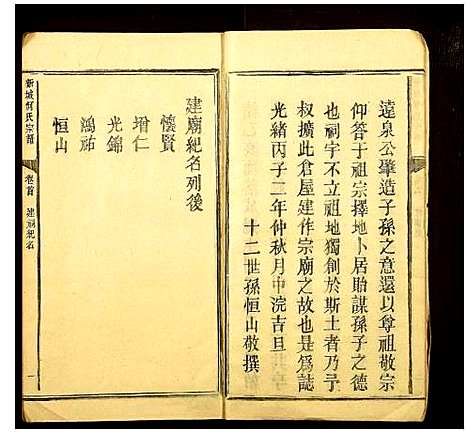 遠泉公肇造子孫之意還以尊祖敬宗
仰答于祖宗擇地卜居貽謀孫子之德
也祠宇不立祖地獨創於斯土者乃予
叔擴此倉屋建作宗廟之故也是爲誌
光緒丙子二年仲秋月中浣吉旦
十二世孫恒山敬撰
建廟紀名列後
懷賢
增仁
光錦
鴻祐
恒山
新城何氏宗譜
卷首
建祠紀名
一